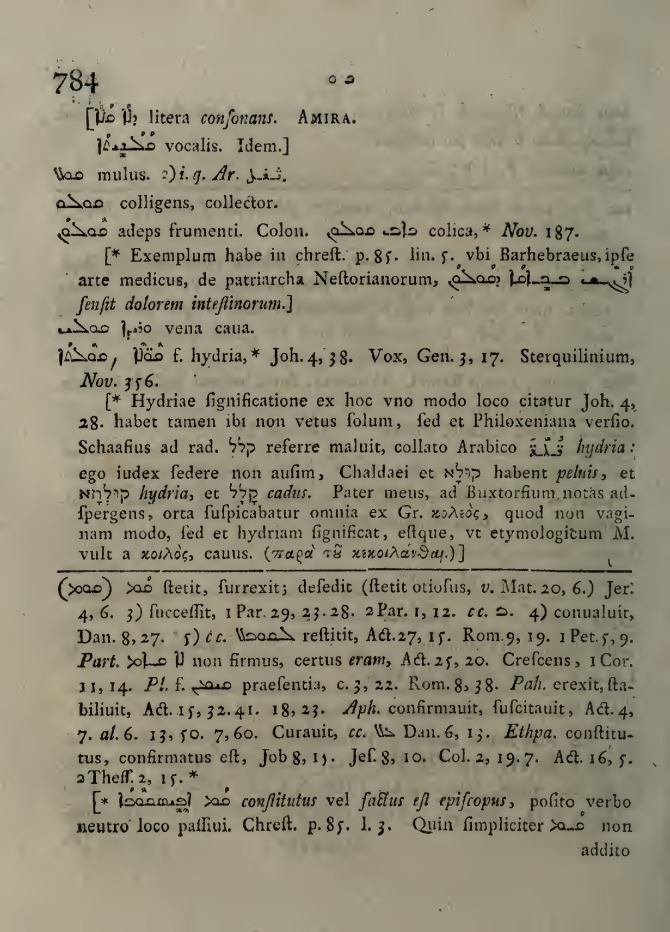 784 ܩܘ
litera conſonans. AMIRA.
vocalis. Idem.]
mulus. 2) i. q. Ar.
ܩܘܠܒ colligens, collector.
adeps frumenti. Colon. colica,* Nov. 187.
[* Exemplum habe in chreſt. p. 85. lin. 5. vbi Barhebraeus, ipſe
arte medicus, de patriarcha Neſtorianorum,
ſenſit dolorem inteſtinorum.]
vena caua.
f. hydria,* Joh. 4, 38. Vox, Gen. 3, 17. Sterquilinium,
Nov. 356.
[* Hydriae ſignificatione ex hoc vno modo loco citatur Joh. 4,
28. habet tamen ibi non vetus ſolum, ſed et Philoxeniana verſio.
Schaafius ad rad. קלל referre maluit, collato Arabico hydria:
ego iudex ſedere non auſim, Chaldaei et קולא habent peluis, et
hydria, et קלל cadus. Pater meus, ad Buxtorfium notas ad-
ſpergens, orta ſuſpicabatur omnia ex Gr. κολεὸς, quod non vagi-
nam modo, ſed et hydriam ſignificat, eſtque, vt etymologicum M.
vult a κοιλὸς, cauus. (παρὰ τὸ κεκοιλάνθαι.)]
(ܩܘܡ) ܩܡ ſtetit, ſurrexit; deſedit (ſtetit otioſus, v. Mat. 20, 6.) Jer.
4, 6. 3) ſucceſſit, 1 Par. 29, 23. 28. 2 Par. 1, 12. cc. ܒ. 4) conualuit,
Dan. 8, 27. 5) cc. ܠܩܘܒܠ reſtitit, Act. 27, 15. Rom. 9, 19. 1 Pet. 5, 9.
Part. ܠܐ ܩܝܡ non firmus, certus eram, Act. 25, 20. Creſcens, 1 Cor.
11, 14. Pl. f. ܩܝܡܢ praeſentia, c. 3, 22. Rom. 8, 38. Pah. crexit, ſta-
biliuit, Act. 15, 32. 41. 18, 23. Aph. confirmauit, ſuſcitauit, Act. 4,
7. al. 6. 13, 50. 7, 60. Curauit, cc. ܥܠ Dan. 6, 13. Ethpa. conſtitu-
tus, confirmatus eſt, Job 8, 15. Jeſ. 8, 10. Col. 2, 19. 7. Act. 16, 5.
2 Theſſ. 2, 15. *
[* ܩܡ ܐܦܝܣܩܘܦܐ conſtitutus vel factus eſt epiſcopus, poſito verbo
neutro loco paſſiui. Chreſt. p. 85. l. 3. Quin ſimpliciter ܩܝܡ non
addito